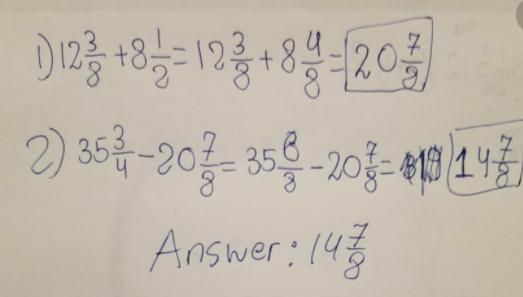 1) 12 3/8 + 8 1/2 = 12 3/8 + 8 4/8 = 20 7/8
2) 35 3/4 - 20 7/8 = 35 6/8 - 20 7/8 = 14 7/8
Answer: 14 7/8